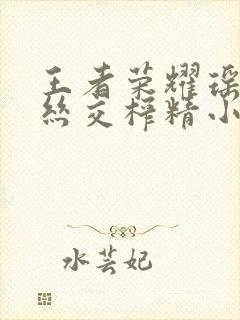 王者荣耀瑶
丝交榨精小
水芸妃